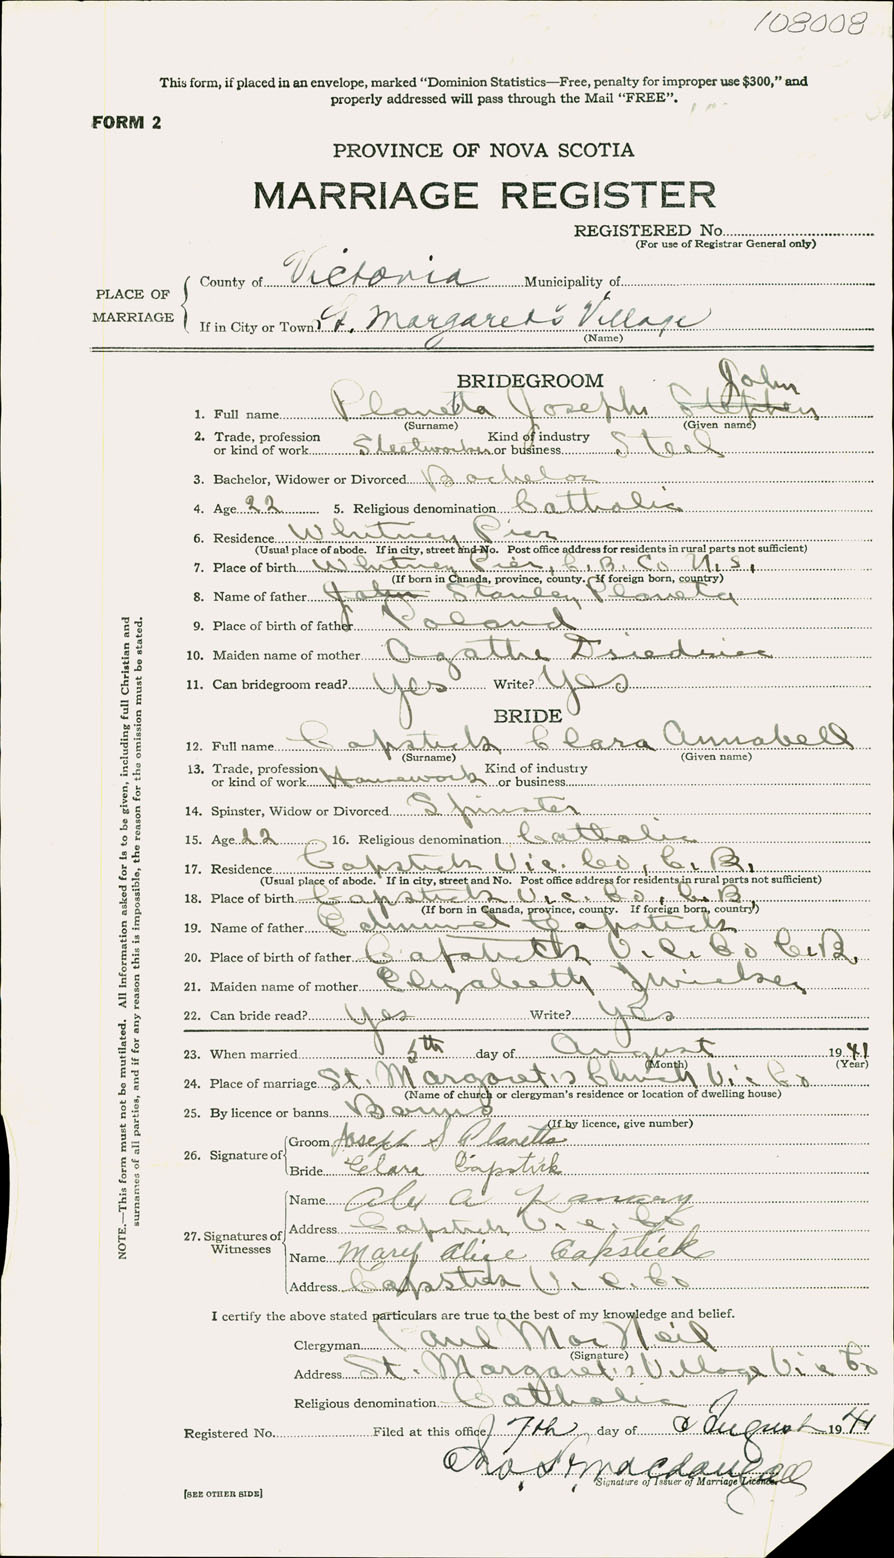 108008
This form, if placed in an envelope, marked “Dominion Statistics—Free, penalty for improper use $300,” and
properly addressed will pass through the Mail “FREE”.
FORM 2
PROVINCE OF NOVA SCOTIA
MARRIAGE REGISTER
REGISTERED No.
(For use of Registrar General only)
PLACE OF MARRIAGE
County of Victoria Municipality of
If in City or Town St. Margaret's Village
(Name)
BRIDEGROOM
John
1. Full name Planetta Joseph Stephen
(Surname) (Given name)
2. Trade, profession or kind of work Steelworker Kind of industry or business Steel
3. Bachelor, Widower or Divorced Bachelor
4. Age 22 5. Religious denomination Catholic
6. Residence Whitney Pier
(Usual place of abode. If in city, street and No. Post office address for residents in rural parts not sufficient)
7. Place of birth Whitney Pier, C. B. Co N. S.,
(If born in Canada, province, county. If foreign born, country)
8. Name of father John Stanley Planeta
9. Place of birth of father Poland
10. Maiden name of mother Agathe
11. Can bridegroom read? Yes Write? Yes
BRIDE
12. Full name Capstick Clara Annabell
(Surname) (Given name)
13. Trade, profession or kind of work Housework Kind of industry or business
14. Spinster, Widow or Divorced Spinster
15. Age 22 16. Religious denomination Catholic
17. Residence Capstick Vic. Co, C. B,
(Usual place of abode. If in city, street and No. Post office address for residents in rural parts not sufficient)
18. Place of birth Capstick Vic. Co, C. B,
(If born in Canada, province, county. If foreign born, country)
19. Name of father Edmund Capstick
20. Place of birth of father Capstick Vic. Co C. B,
21. Maiden name of mother Elizabeth Zwicker
22. Can bride read? Yes Write? Yes
23. When married 5th day of August 1941
(Month) (Year)
24. Place of marriage St. Margaret's Church Vic Co
(Name of church or clergyman's residence or location of dwelling house)
25. By licence or banns Banns
(If by licence, give number)
26. Signature of
Groom Joseph S Planetta
Bride Clara Capstick
27. Signatures of Witnesses
Name Alex A
Address Capstick Vic. Co
Name Mary Alice Capstick
Address Capstick Vic. Co
I certify the above stated particulars are true to the best of my knowledge and belief.
Clergyman Paul MacNeil
(Signature)
Address St. Margaret's Village Vic Co
Religious denomination Catholic
Registered No. Filed at this office 7th day of August 1941
MacDougall
Signature of Issuer of Marriage Licence
[SEE OTHER SIDE]
NOTE.—This form must not be mutilated. All information asked for is to be given, including full Christian and
surnames of all parties, and if for any reason this is impossible, the reason for the omission must be stated.